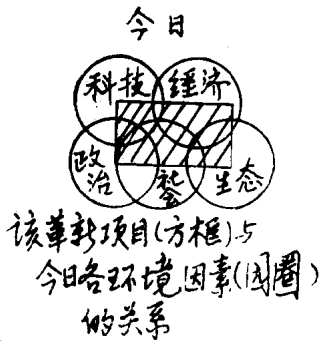 今日
科技 經济
政治 社会 生态
该革新项目(方框)与
今日各环境因素(园圈)
的关系